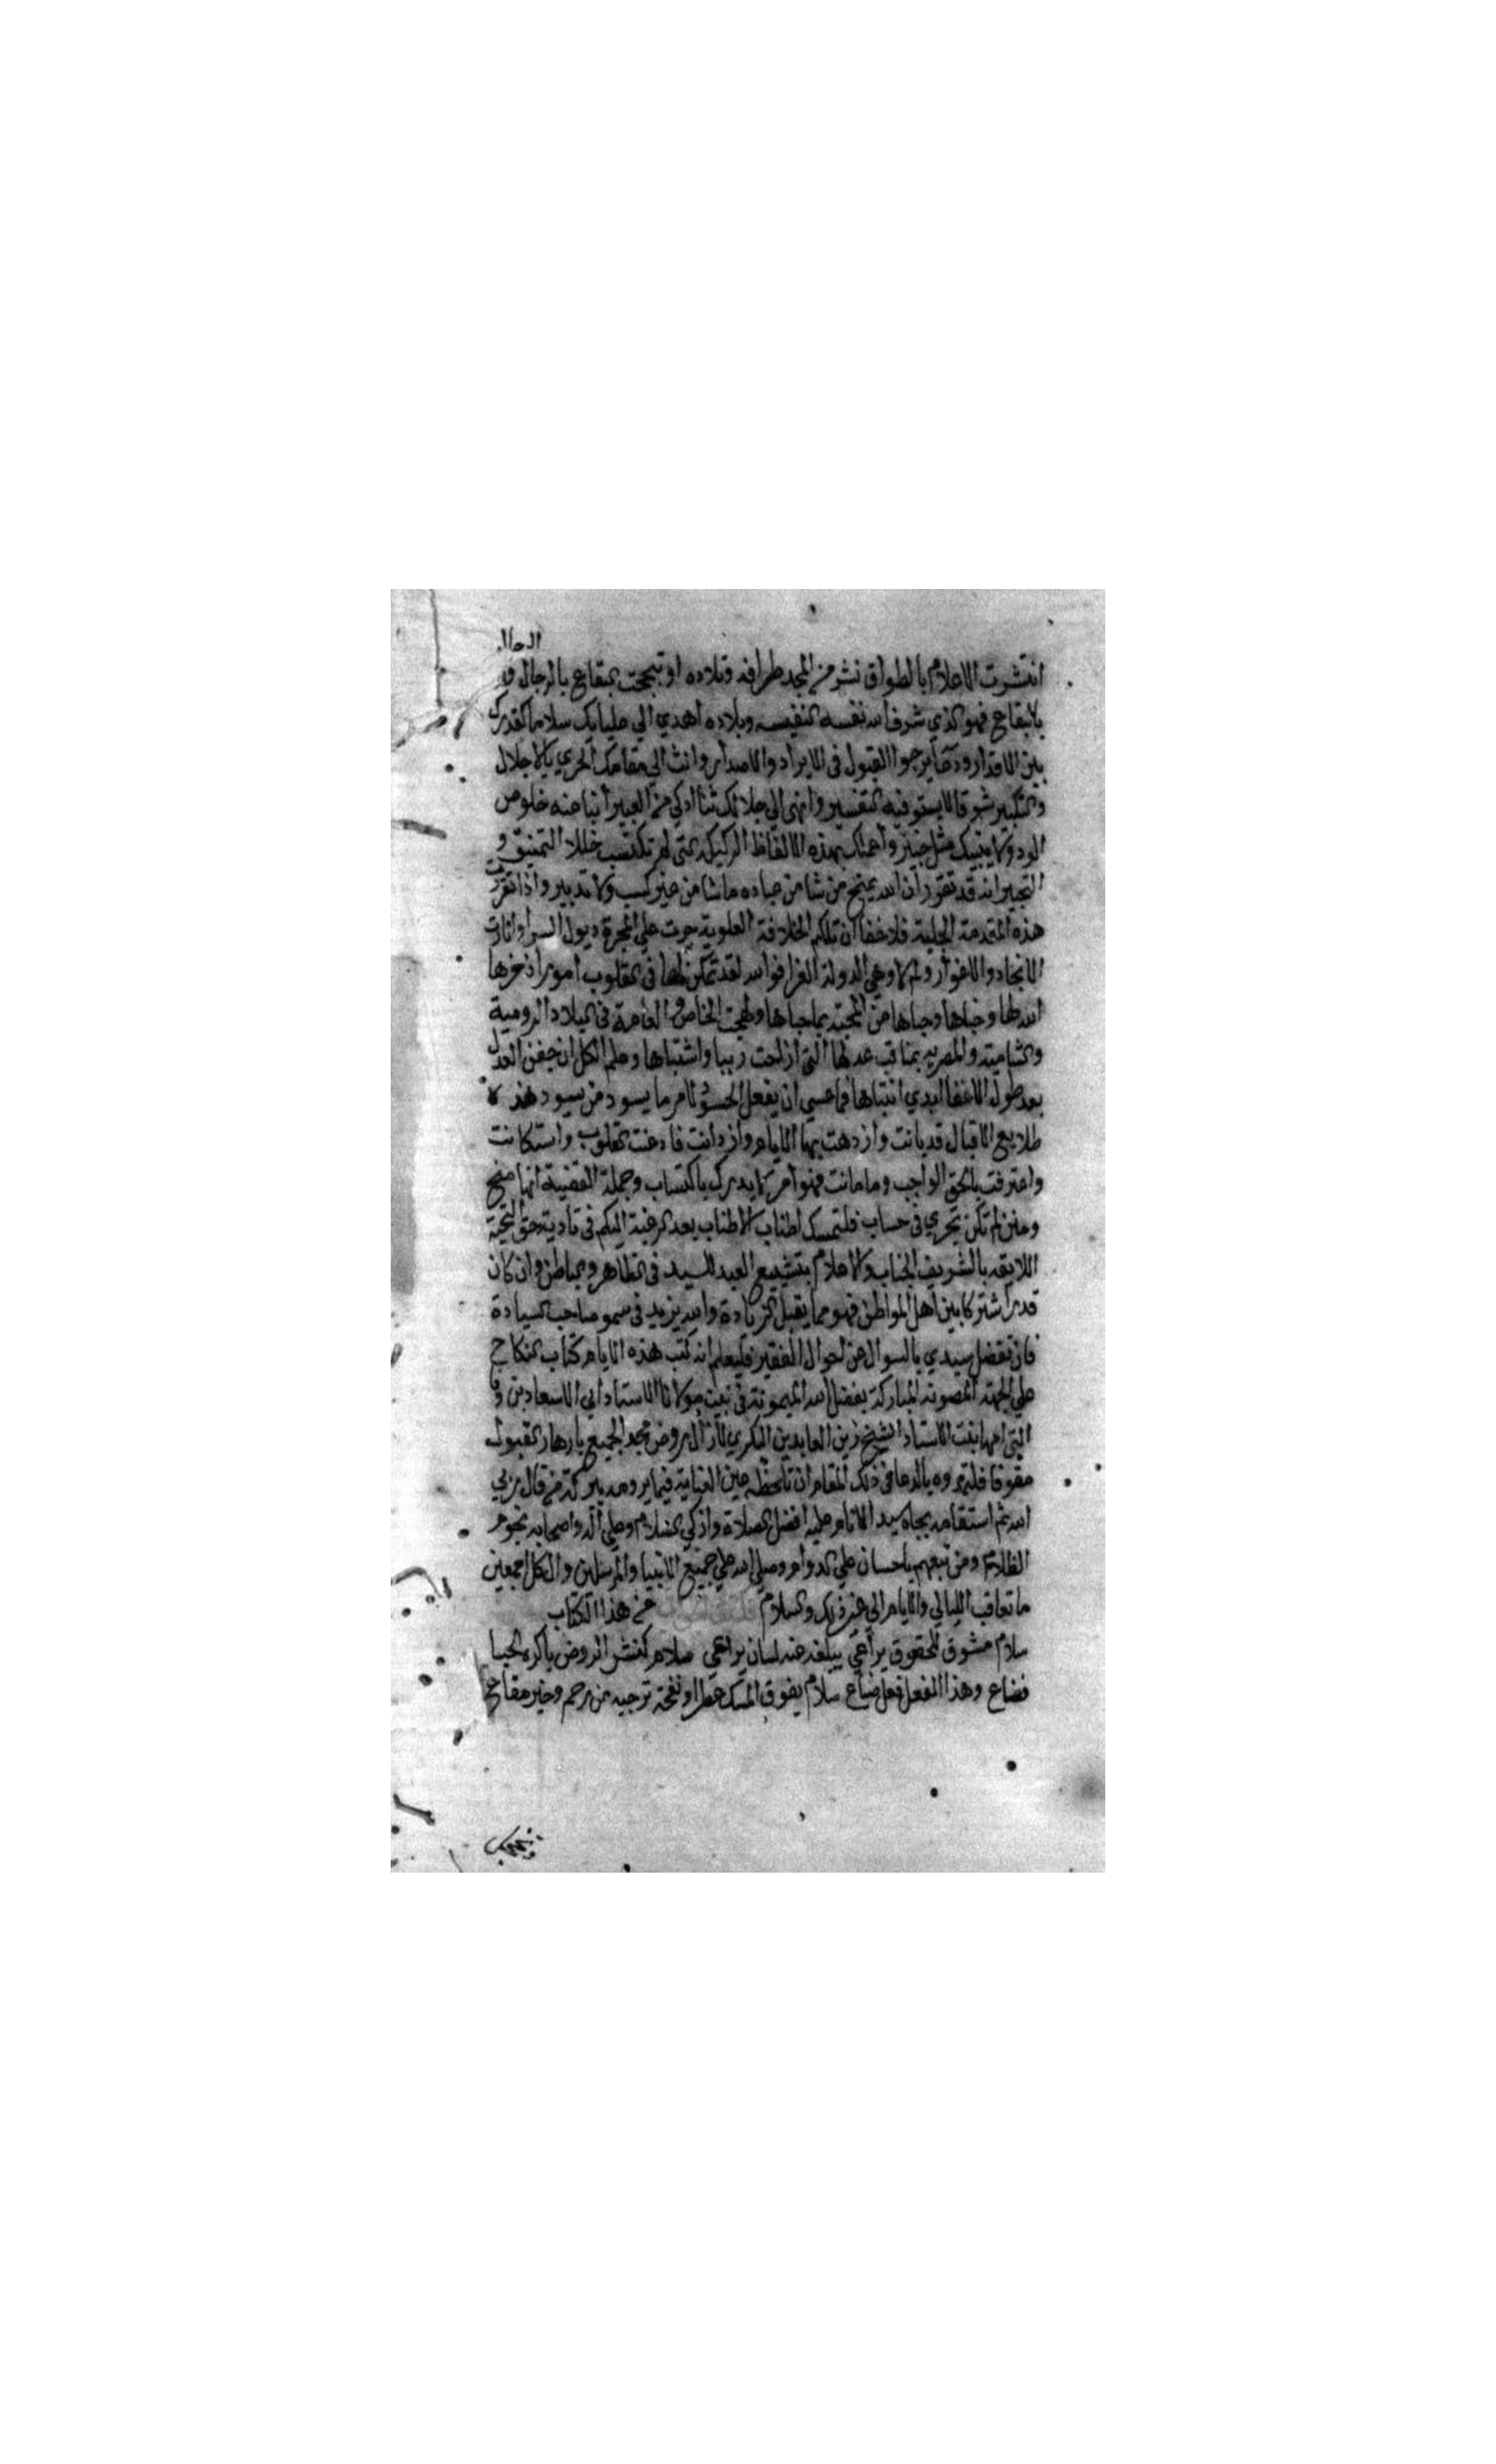 الرجال
انتشرت الاعلام بالطواق نشر من المجد طرافه وتلاده او تبجحت البقاع بالرجال والرجال
بالبقاع فهو الذي شرف الله نفسه النفيسه وبلاده اهدي الي عليايك سلاما كقدرك
بين الاقدار ودعا يرجوا القبول في الايراد والاصدار وانث الي مقامك الحري بالاجلال
والتكبير شوقا لا يستوفيه التفسير وانهي الي جلالك ثنا اذكي من العبير أنبا عنه خلوص
الود ولا ينبيك مثل خبير وأعملك بهذه الالفاظ الركيكه التي لم تكتسب حللا التمنيق و
التحبير انه قد تقرر أن الله يمنح من شا من عباده ماشا من غير كسب ولا تدبير واذا تقررت
هذه المقدمة الجلية فلا خفا ان تلكم الخلافة العلوية جرت علي المجرة ديول السرا وانارت
الانجاد والاغوار ولم لا وهي الدولة الغرا فوالله لقد تمكن لها في القلوب امور اذخرها
الله لها وخباها وحباها من المحبة بما حباها ولهجت الخاص والعامة في البلاد الرومية
والشامية والمصريه بمناقب عدلها التي أزاحت ريبا واشتباها وعلم الكل ان جفن العدل
بعد طول الاغفا ابدي انتباها فما عسي ان يفعل الحسود نام ما يسود من يسود هذه
طلايع الاقبال قد بانت وازدهت بها الايام وازدانت فادعنت القلوب واستكانت
واعترفت بالحق الواجب وما مانت فهو أمر لا يدرك باكتساب وجملة القضية انها منح
ومنن لم تكن تجري في حساب فلتمسك اطناب الاطناب بعد الرغبة اليكم في تادية حق التحية
اللايقه بالشريف الجناب والاعلام بتشييع العبد للسيد في الظاهر والباطن وان كان
قدرا مشتركا بين أهل المواطن فهو مما يقبل الزيادة والله يزيد في سمو صاحب السيادة
فان تفضل سيدي بالسوال عن احوال الفقير فليعلم انه كتب هذه الايام كتاب النكاح
علي الجهة المصونة المباركة بفضل الله الميمونة في بيت مولانا الاستاد ابي الاسعاد بن وفا
التي امها بنت الاستاد الشيخ زين العابدين البكري لازال روض مجد الجميع بازهار القبول
مفوفا فلتمدوه بالدعا في ذلك المقام ان تلحظه عين العناية فيما يرومه ببركة من قال ربي
الله ثم استقام بجاه سيد الانام عليه افضل الصلاة وازكي السلام وعلي آله واصحابه نجوم
الظلام ومن تبعهم باحسان علي الدوام وصلي الله علي جميع الانبيا والمرسلين وال كل اجمعين
ما تعاقب الليالي والايام الي عز ذلك والسلام من هذا الكتاب
سلام مشوق للحقوق يراعي يبلغه عنه لسان يراعي سلام كنشر الروض باكره الحيا
فضاع وهذا الفعل فعل ضاع سلام يفوق المسك عطرا ونفحة ترجيه من رحم وخير مقام